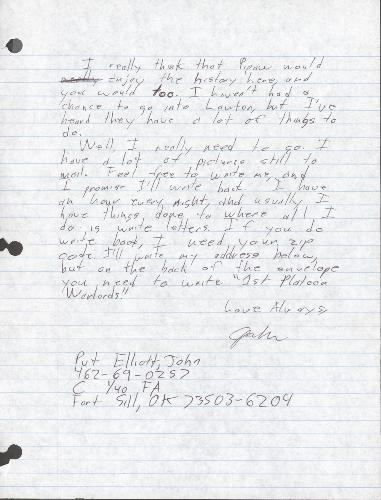 I really think that Pipaw would
really enjoy the history here, and
you would too. I haven't had a
chance to go into Lawton, but I've
heard they have a lot of things to
do.
Well, I really need to go. I
have a lot of pictures still to
mail. Feel free to write me, and
I promise I'll write back. I have
an hour every night, and usually I
have things done to where all I
do is write letters. If you do
write back, I need your zip
code. I'll write my address below,
but on the back of the envelope
you need to write "1st Platoon
Warlords."
Love Always,
John
Pvt Elliott, John
462-69-0257
C 1/40 FA
Fort Sill, OK 73503-6204